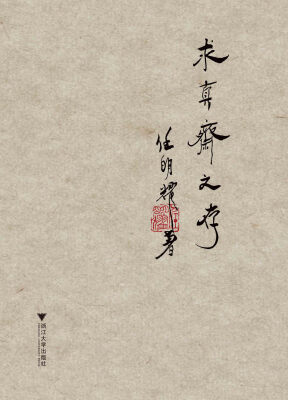 求真斋文存
任明耀著
浙江大学出版社